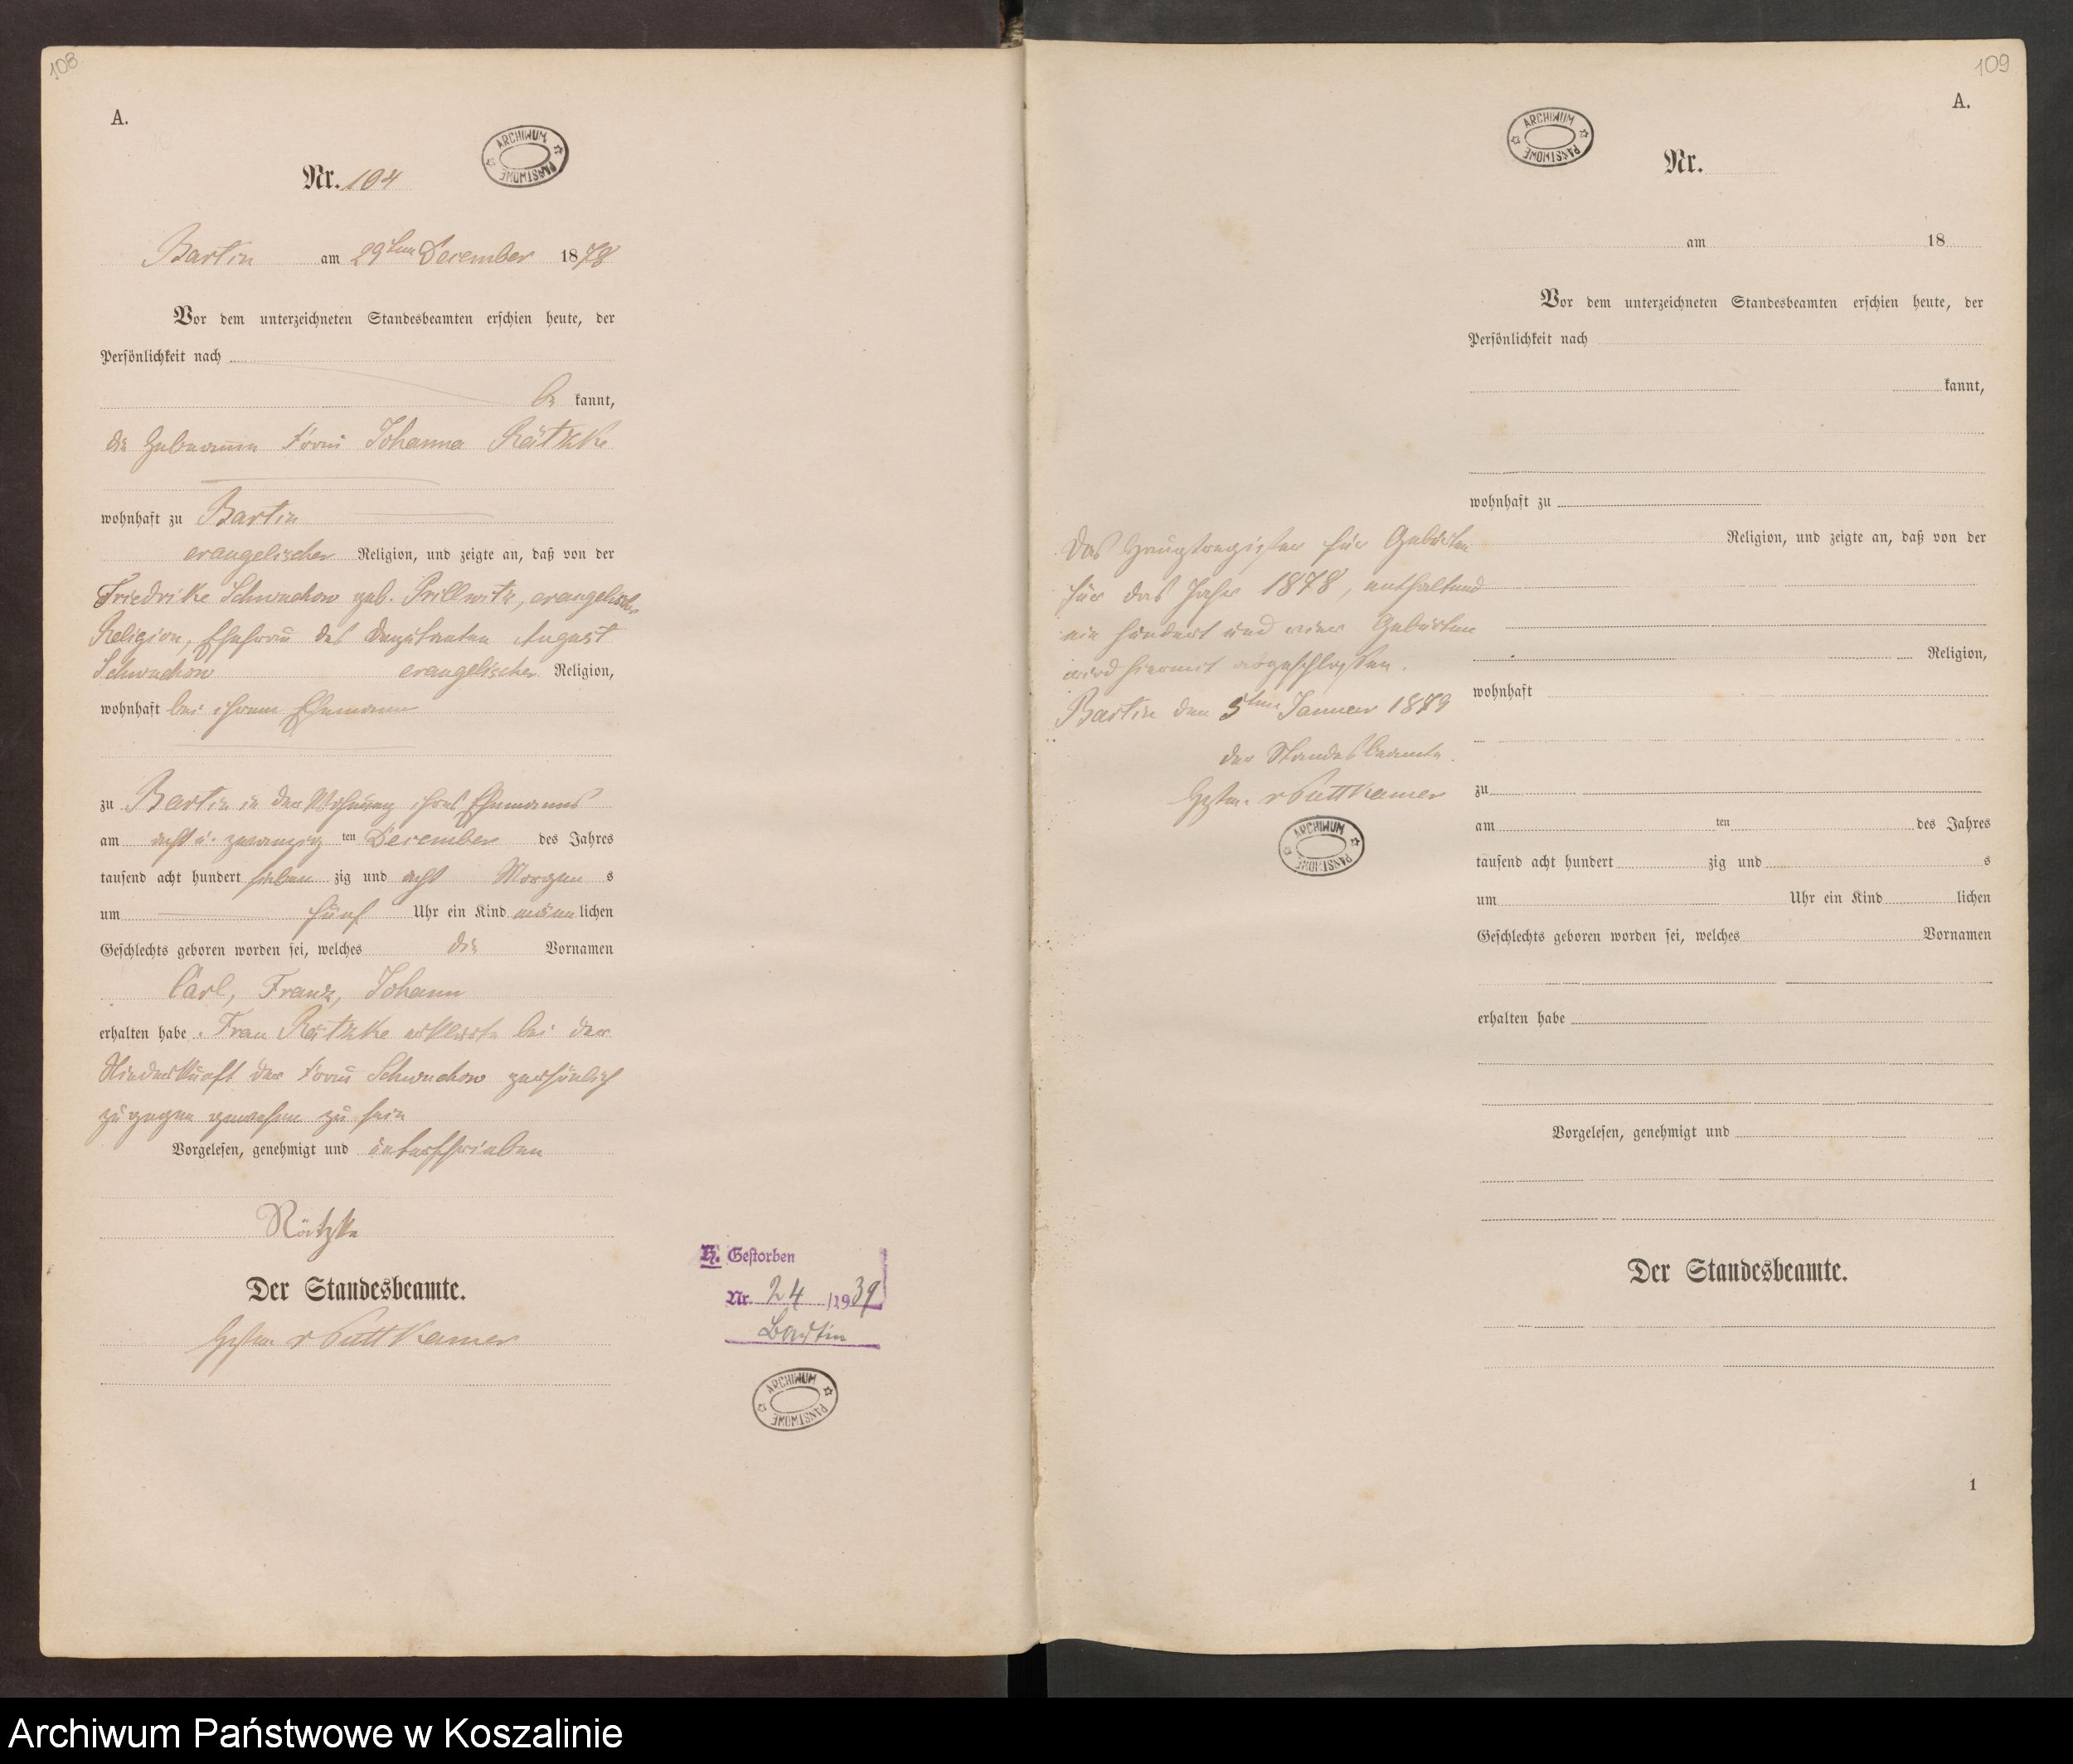 108
A.
ARCHIWUM PAŃSTWOWE
Nr. 104
Bartin am 29ten December 1878
Vor dem unterzeichneten Standesbeamten erschien heute, der
Persönlichkeit nach
be kannt,
die Hebeamme Frau Johanna Rätzke
wohnhaft zu Bartin
evangelischer Religion, und zeigte an, daß von der
Friedrike Schwuchow geb. Prillwitz, evangelischer
Religion, Ehefrau des August
Schwuchow evangelischer Religion,
wohnhaft bei ihrem Ehemann
zu Bartin in der Wohnung ihres Ehemanns
am acht u. zwanzig ten December des Jahres
tausend acht hundert sieben zig und acht Morgen s
um fünf Uhr ein Kind männ lichen
Geschlechts geboren worden sei, welches die Vornamen
Carl, Franz, Johann
erhalten habe. Frau Rätzke erklärte bei der
Niederkunft der Frau Schwuchow persönlich
zugegen gewesen zu sein
Vorgelesen, genehmigt und unterschrieben
Rätzke
Der Standesbeamte.
v Puttkamer
H. Gestorben
Nr. 24 /1939
Bartin
ARCHIWUM PAŃSTWOWE
109
A.
ARCHIWUM PAŃSTWOWE
Nr.
am 18
Vor dem unterzeichneten Standesbeamten erschien heute, der
Persönlichkeit nach
kannt,
wohnhaft zu
Religion, und zeigte an, daß von der
Religion,
wohnhaft
zu
am ten des Jahres
tausend acht hundert zig und s
um Uhr ein Kind lichen
Geschlechts geboren worden sei, welches Vornamen
erhalten habe
Vorgelesen, genehmigt und
Der Standesbeamte.
1
Das Hauptregister für Geburten
für das Jahr 1878, enthaltend
ein hundert und vier Geburten
wird hiermit abgeschlossen.
Bartin den 5ten Januar 1879
der Standesbeamte.
v Puttkamer
ARCHIWUM PAŃSTWOWE
Archiwum Państwowe w Koszalinie